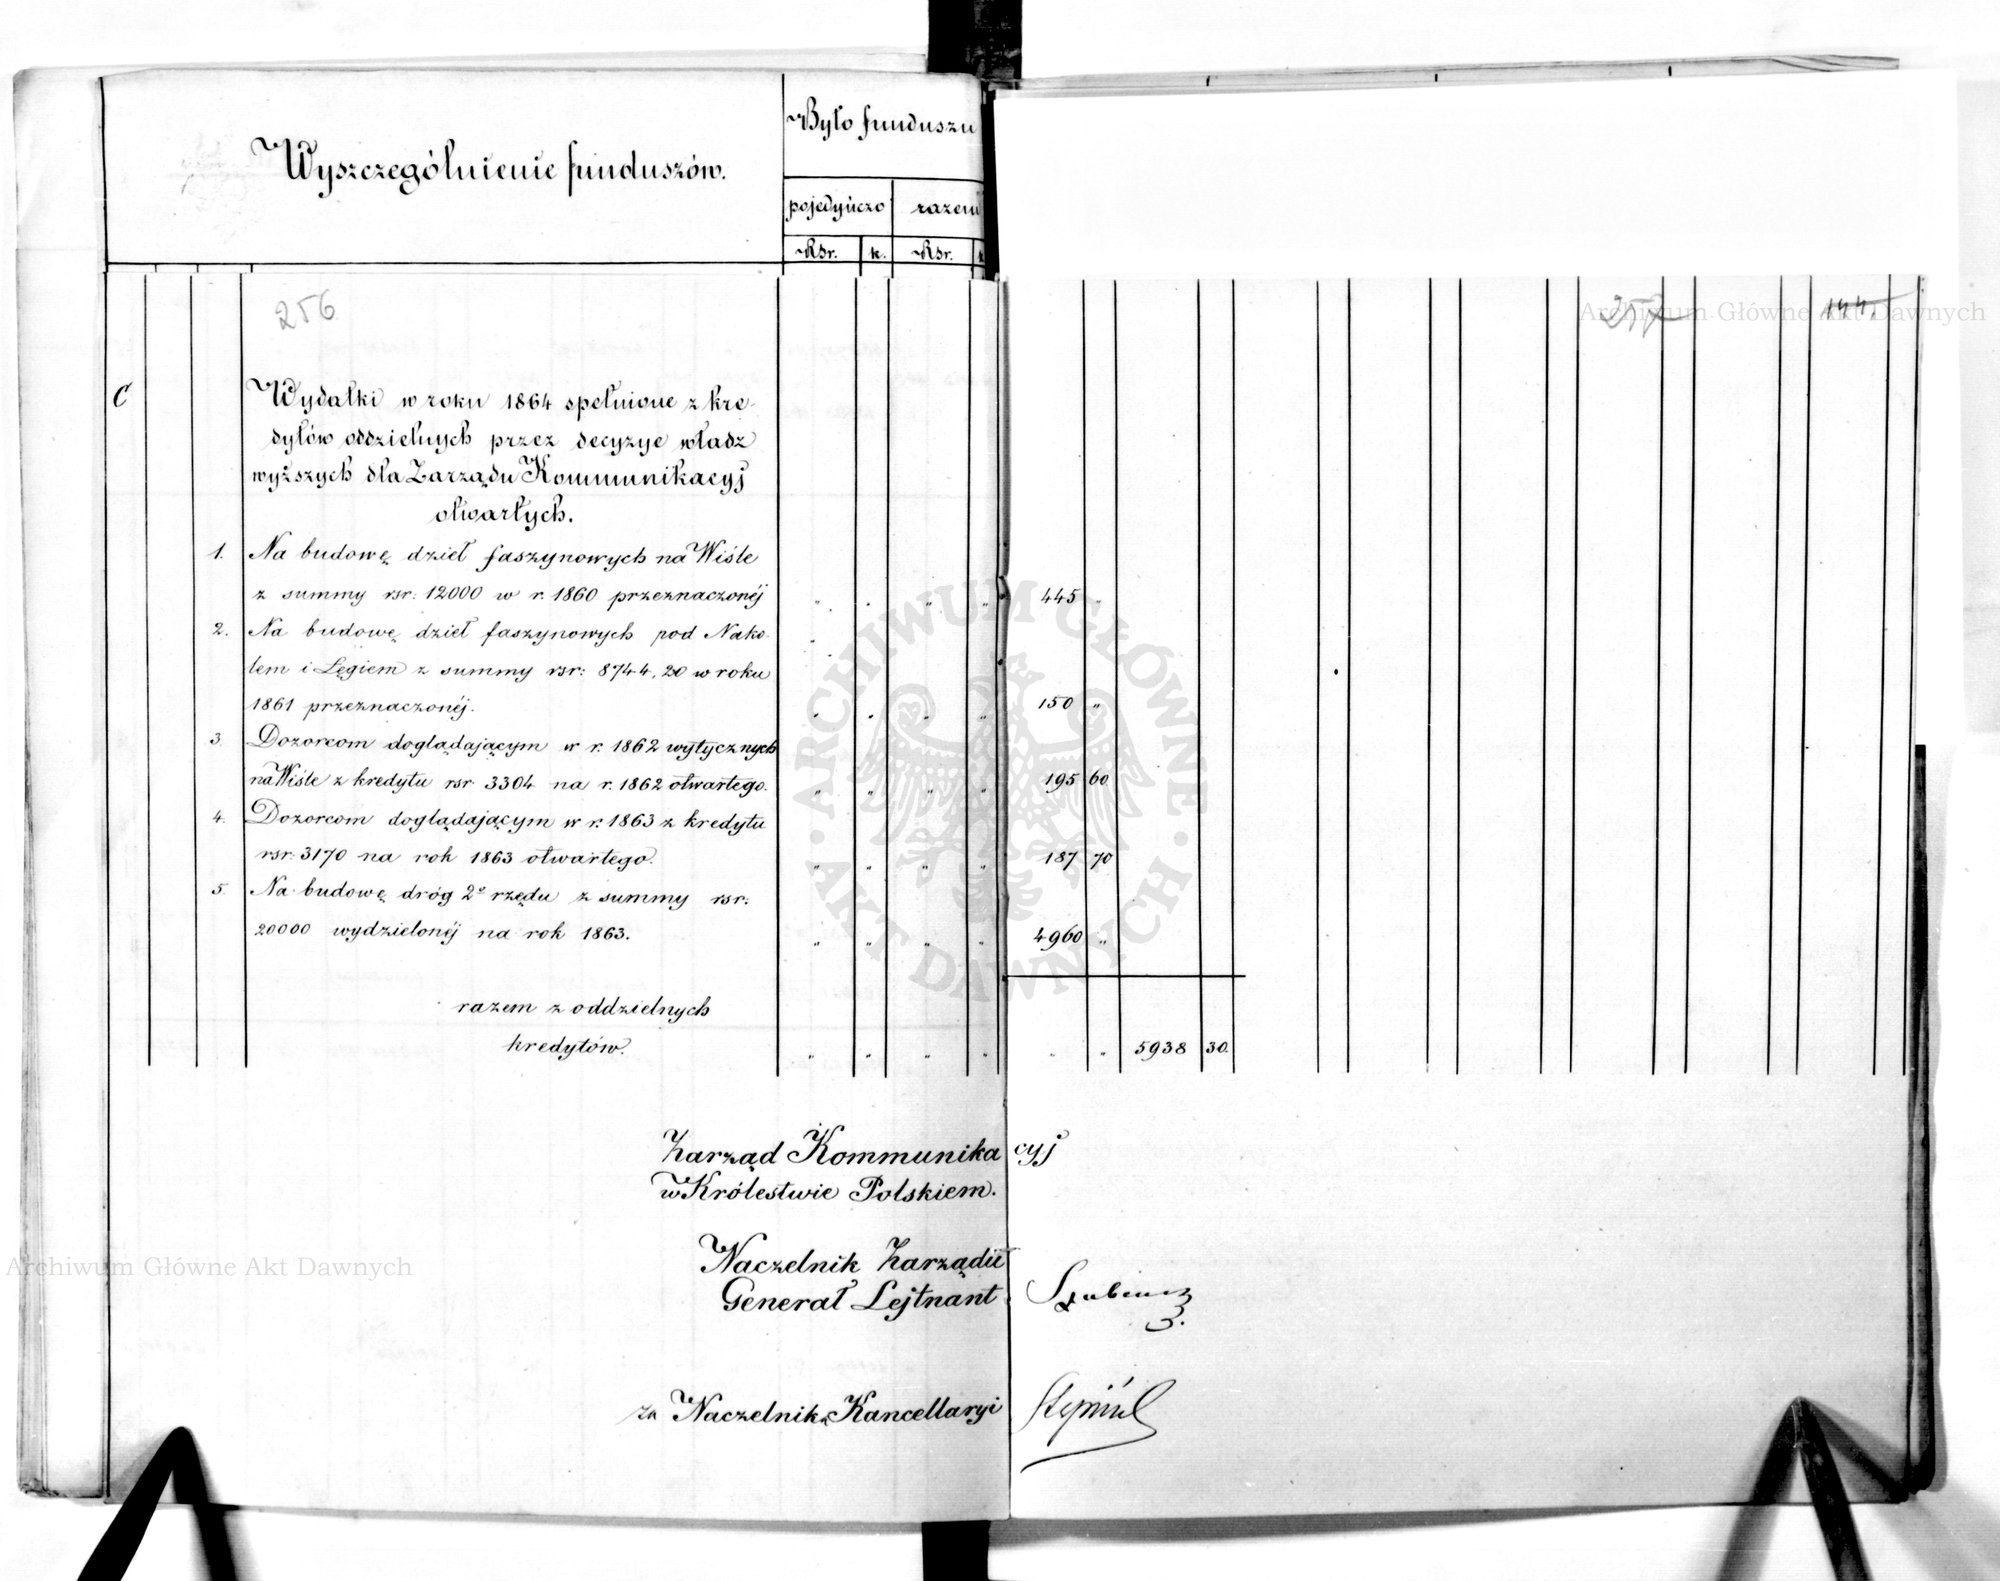 Wyszczególnienie funduszów.
Było funduszu
pojedyńczo razem
Rsr. k. Rsr. k
256
257 144.
C Wydatki w roku 1864 spełnione z kre-
dytów oddzielnych przez decyzye władz
wyższych dla Zarządu Kommunikacyj
otwartych.
1. Na budowę dzieł faszynowych na Wiśle
z summy rsr: 12000 w r. 1860 przeznaczonéj " " " " 445 "
2. Na budowę dzieł faszynowych pod Nako-
łem i Łęgiem z summy rsr: 8744,20 w roku
1861 przeznaczonéj. " " " " 150 "
3. Dozorcom doglądającym w r. 1862 wytycznych
na Wiśle z kredytu rsr. 3304 na r. 1862 otwartego. " " " " 195 60
4. Dozorcom doglądającym w r. 1863 z kredytu
rsr. 3170 na rok 1863 otwartego. " " " " 187 70
5. Na budowę dróg 2º rzędu z summy rsr:
20000 wydzielonéj na rok 1863. " " " " 4960 "
razem z oddzielnych
kredytów. " " " " " " 5938 30.
Zarząd Kommunikacyj
w Królestwie Polskiem.
Naczelnik Zarządu
Generał Lejtnant Szubersz
za Naczelnika Kancellaryi
Archiwum Główne Akt Dawnych
Archiwum Główne Akt Dawnych
ARCHIWUM GŁÓWNE · AKT DAWNYCH ·